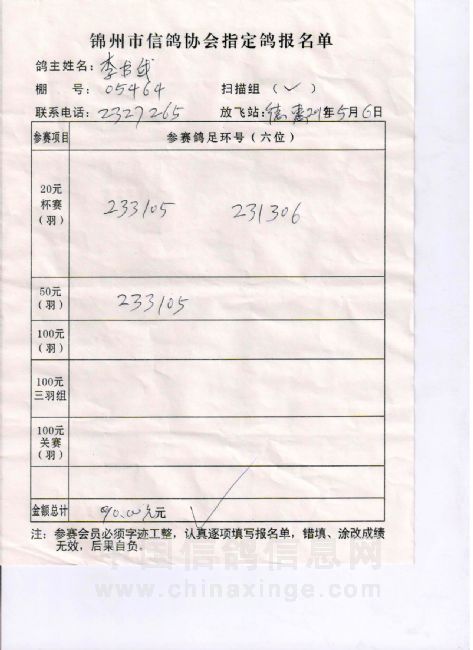 锦州市信鸽协会指定鸽报名单
鸽主姓名：李书成
棚 号：05464 扫描组（✓）
联系电话：2327265 放飞站：德惠21年5月6日
参赛项目 参赛鸽足环号（六位）
20元
杯赛
（羽）
233105 231306
50元
（羽）
233105
100元
（羽）
100元
三羽组
100元
关赛
（羽）
金额总计 90.00元元
注：参赛会员必须字迹工整，认真逐项填写报名单，错填、涂改成绩
无效，后果自负。
中国信鸽信息网
www.chinaxinge.com